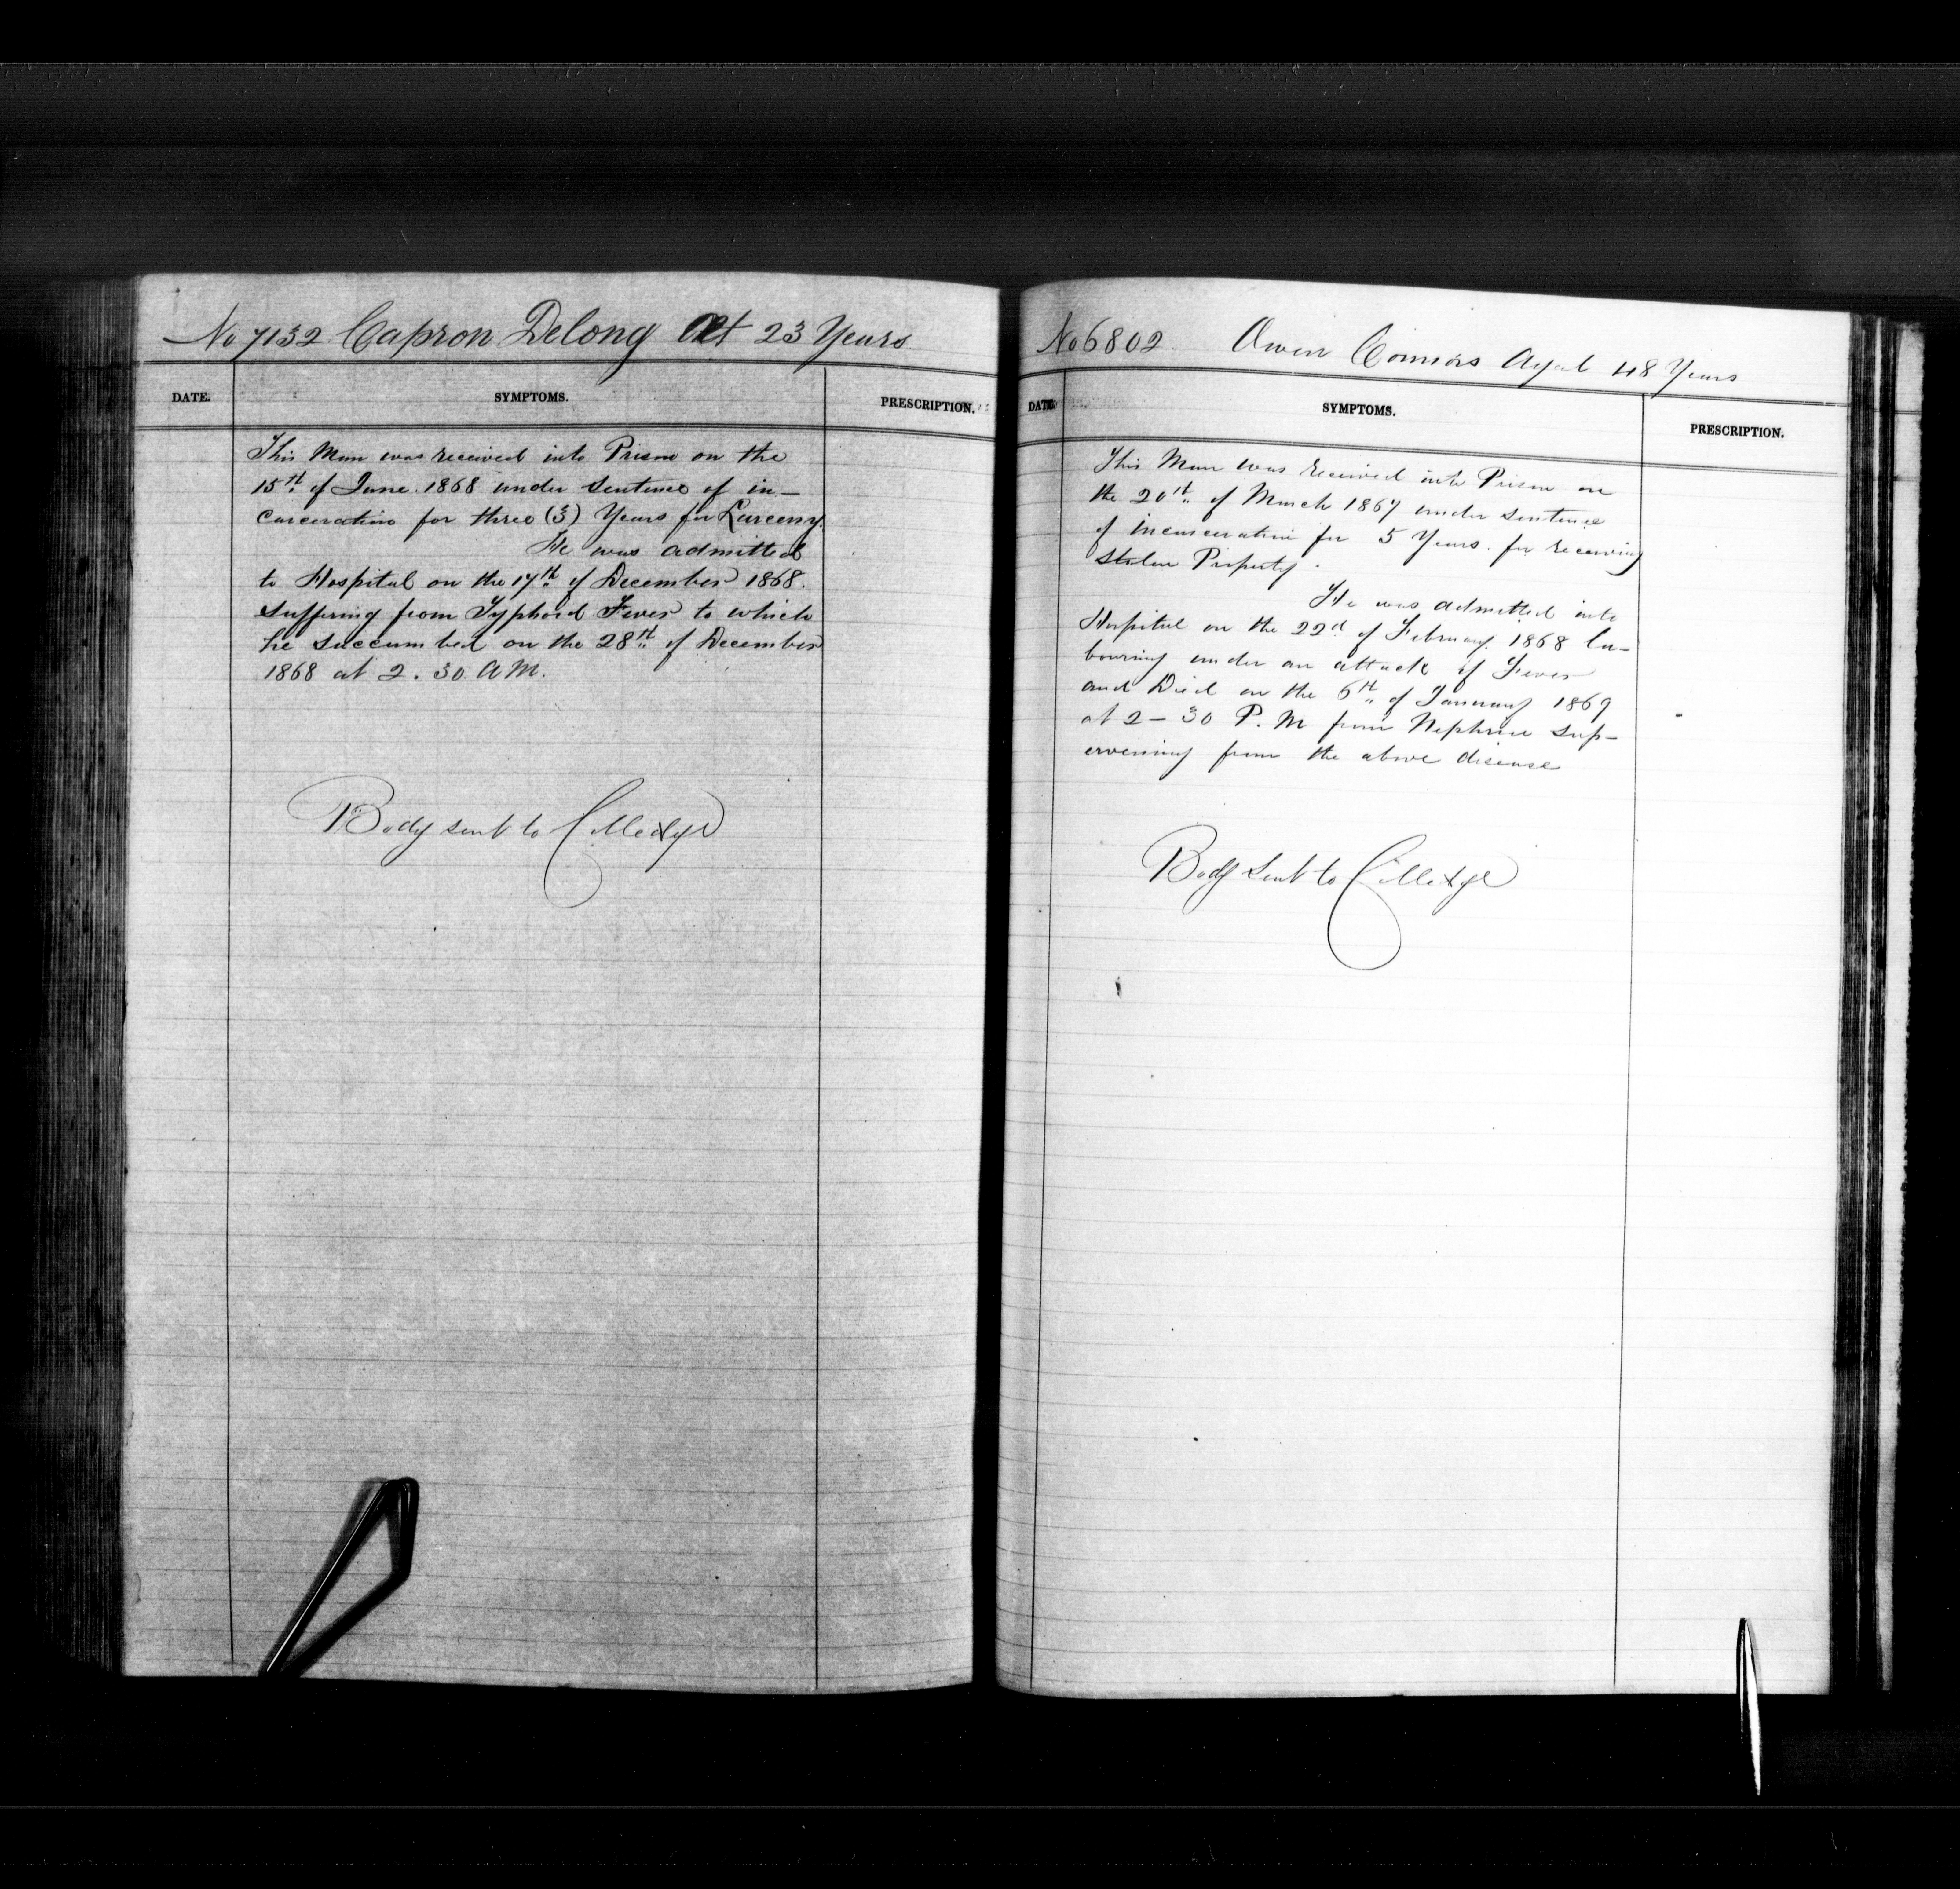 No 7132 Capron Delong Æt 23 Years
DATE. SYMPTOMS. PRESCRIPTION.
This Man was received into Prison on the
15th of June. 1868 under Sentence of in-
carceration for three (3) Years for Larceny.
He was admitted
to Hospital on the 17th of December 1868.
Suffering from Typhoid Fever to which
he succumbed on the 28th of December
1868 at 2.30 AM.
Body sent to Colledge
No 6802 Owen Connors Aged 48 Years
DATE. SYMPTOMS. PRESCRIPTION.
This Man was received into Prison on
the 20th of March 1867 under sentence
of incarceration for 5 Years. for receiving
Stolen Property.
He was admitted into
Hospital on the 22d of February. 1868 la-
bouring under an attack of Fever
and Died on the 6th of January 1869
at 2-30 P.M from sup-
ervening from the above disease
Body sent to Colledge